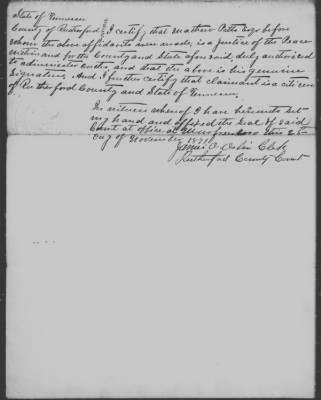 State of Tennessee
County of Rutherford I certify that Mathew Potts Esqr before
whom the above affidavits were made, is a Justice of the Peace
within and for the County and State aforesaid, duly authorized
to administer oaths, and that the above is his genuine
Signature. And I further certify that claimant is a citizen
of Rutherford County and State of Tennessee.
In witness whereof I have hereunto set
my hand and affixed the seal of said
Court at office at Murfreesboro this 25th
day of November
James O. Clerk
Rutherford County Court